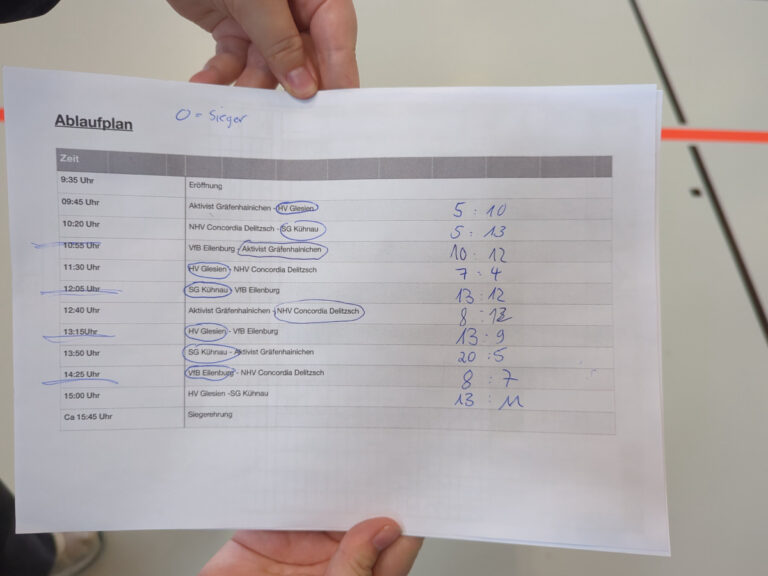 Ablaufplan O = Sieger
Zeit
9:35 Uhr Eröffnung
09:45 Uhr Aktivist Gräfenhainichen - HV Glesien 5 : 10
10:20 Uhr NHV Concordia Delitzsch - SG Kühnau 5 : 13
10:55 Uhr VfB Eilenburg - Aktivist Gräfenhainichen 10 : 12
11:30 Uhr HV Glesien - NHV Concordia Delitzsch 7 : 4
12:05 Uhr SG Kühnau - VfB Eilenburg 13 : 12
12:40 Uhr Aktivist Gräfenhainichen - NHV Concordia Delitzsch 8 :
13:15Uhr HV Glesien - VfB Eilenburg 13 : 9
13:50 Uhr SG Kühnau - Aktivist Gräfenhainichen 20 : 5
14:25 Uhr VfB Eilenburg - NHV Concordia Delitzsch 8 : 7
15:00 Uhr HV Glesien -SG Kühnau 13 : 11
Ca 15:45 Uhr Siegerehrung